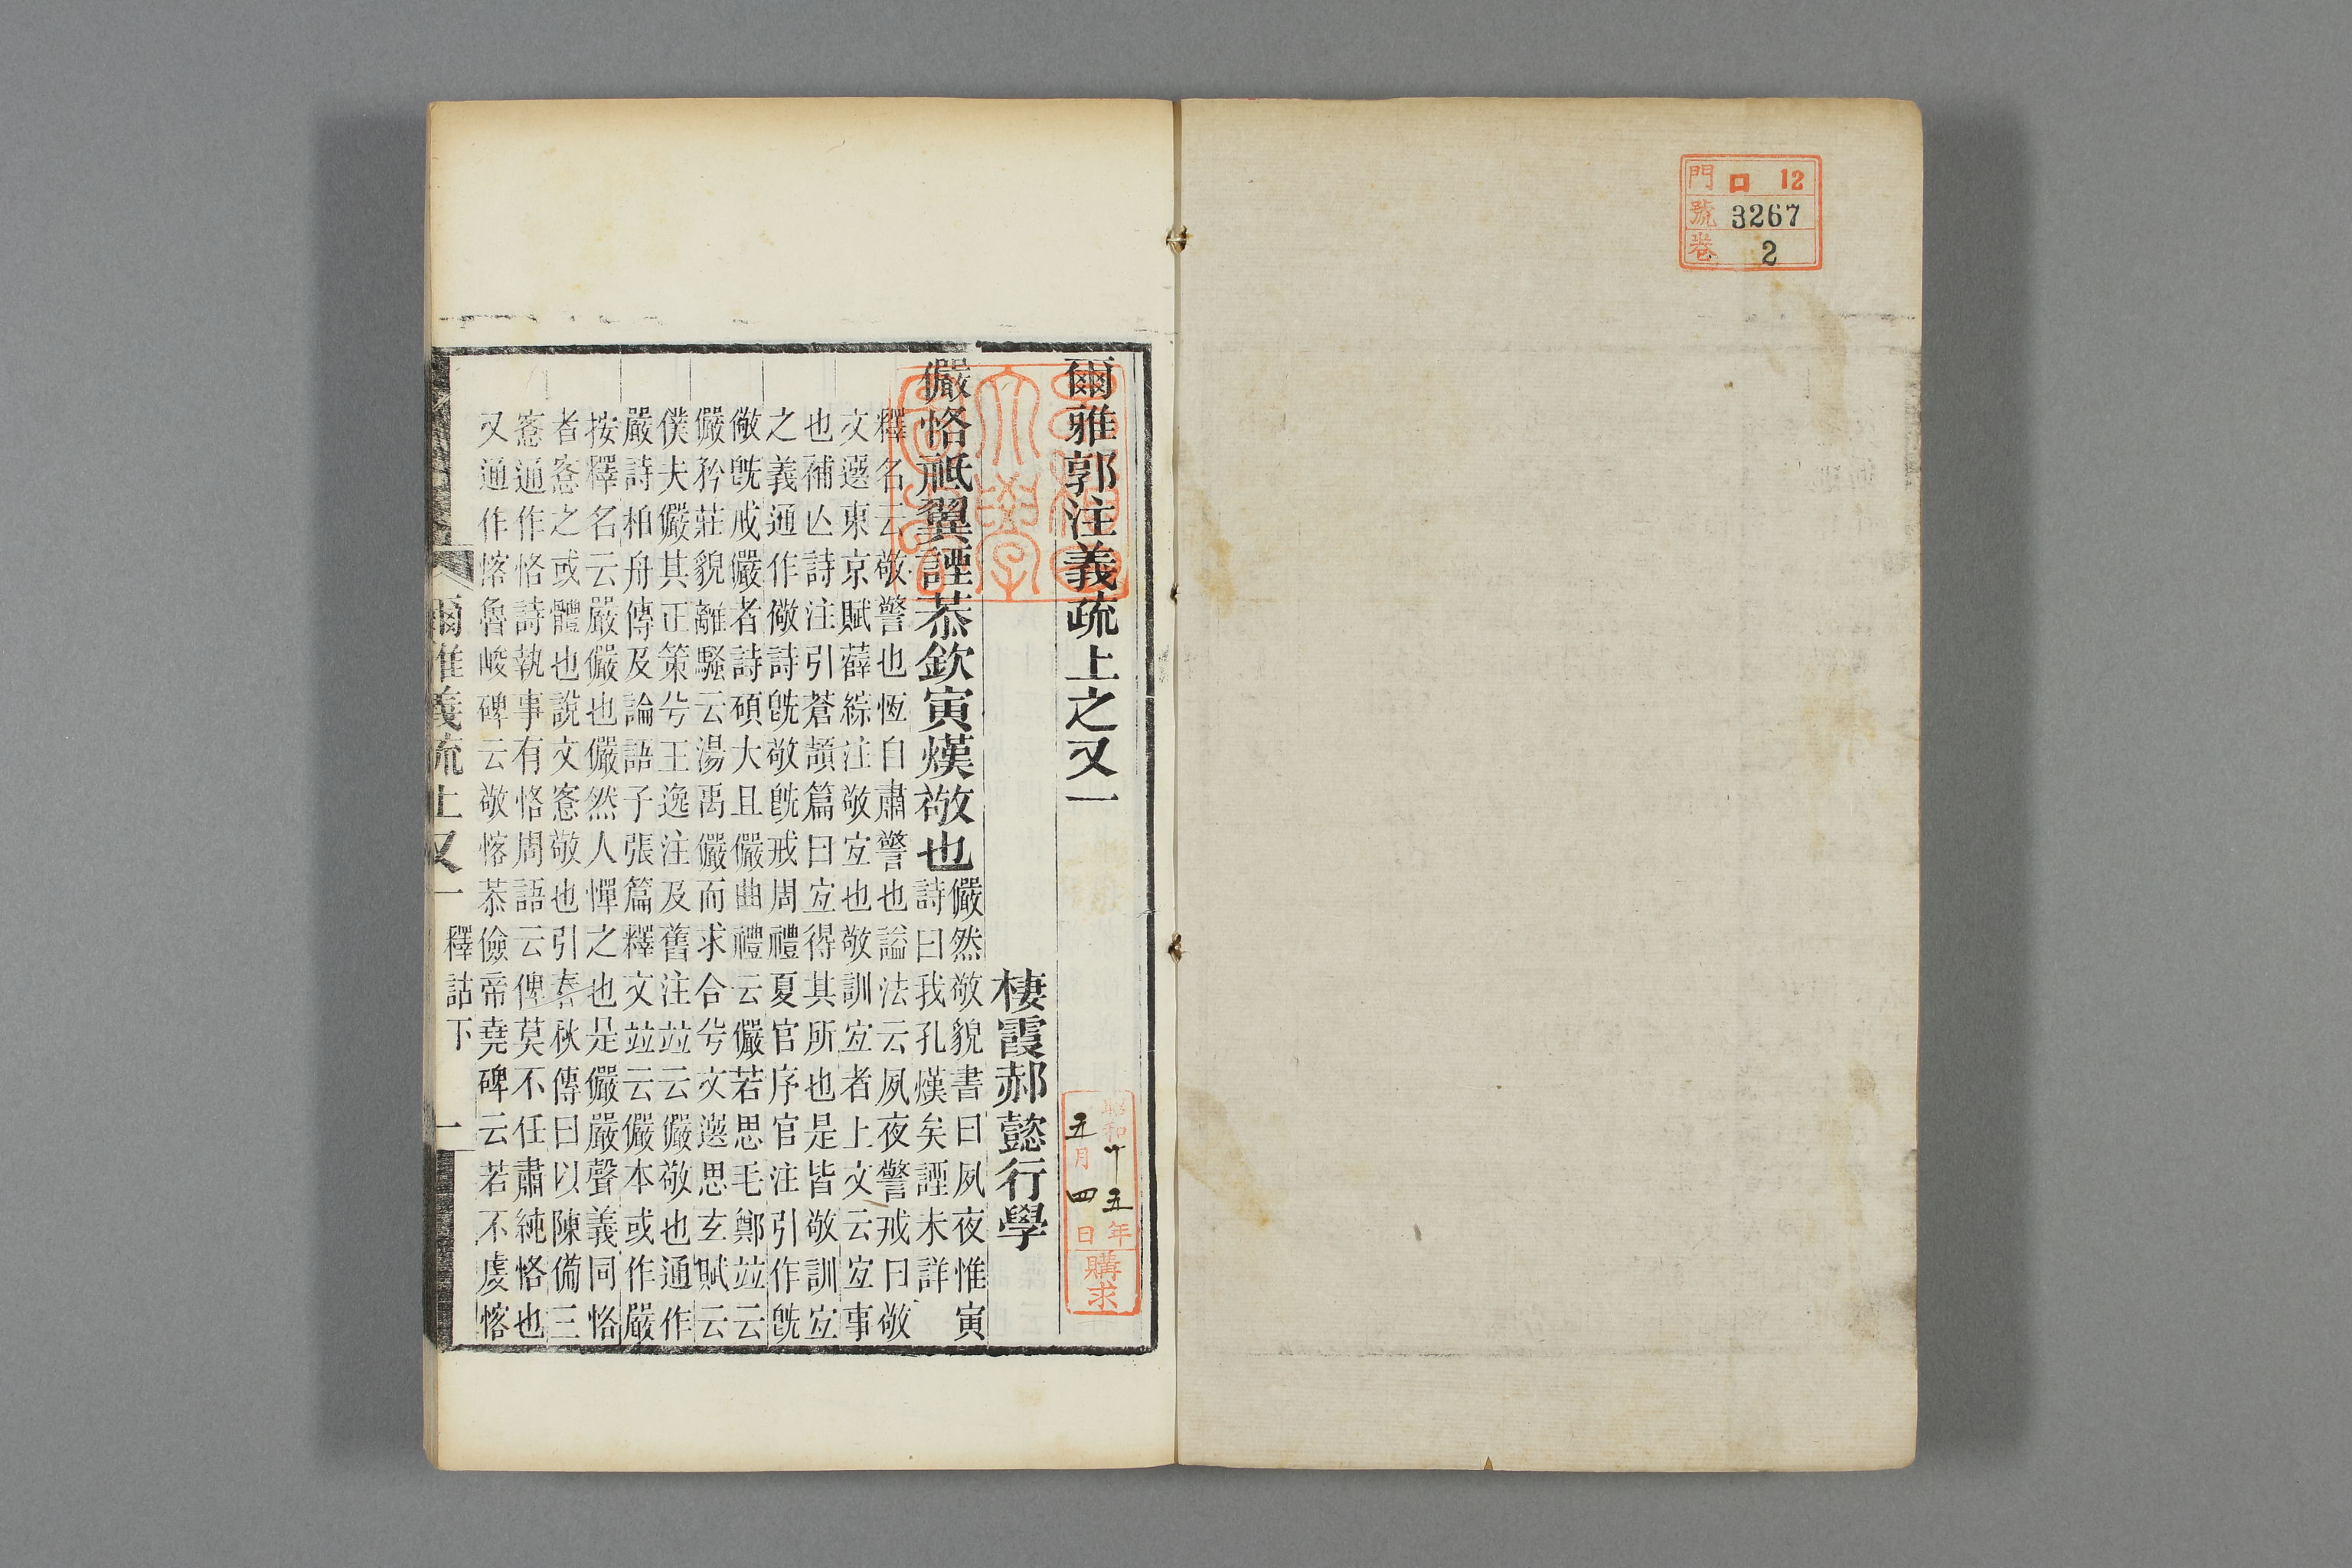 門 口 12
號 3267
卷 2
爾雅郭注義疏上之又一
昭和十五年
五月四日
購求
棲霞郝懿行學
儼恪祗翼諲恭欽寅熯敬也
儼然敬貌書曰夙夜惟寅
詩曰我孔熯矣諲未詳
釋名云敬警也恆自肅警也謚法云夙夜警戒曰敬
文選東京賦薛綜注敬宐也敬訓宐者上文云宐事
也補亾詩注引蒼頡篇曰宐得其所也是皆敬訓宐
之義通作儆詩旣敬旣戒周禮夏官序官注引作旣
儆旣戒儼者詩碩大且儼曲禮云儼若思毛鄭竝云
儼矜莊貌離騷云湯禹儼而求合兮文選思玄賦云
僕夫儼其正策兮王逸注及舊注竝云儼敬也通作
嚴詩柏舟傳及論語子張篇釋文竝云儼本或作嚴
按釋名云嚴儼也儼然人憚之也是儼嚴聲義同恪
者愙之或體也說文愙敬也引春秋傳曰以陳備三
愙通作恪詩執事有恪周語云俾莫不任肅純恪也
又通作愘魯峻碑云敬愘恭儉帝堯碑云若不虔愘
爾雅義疏上又一 釋詁下 一